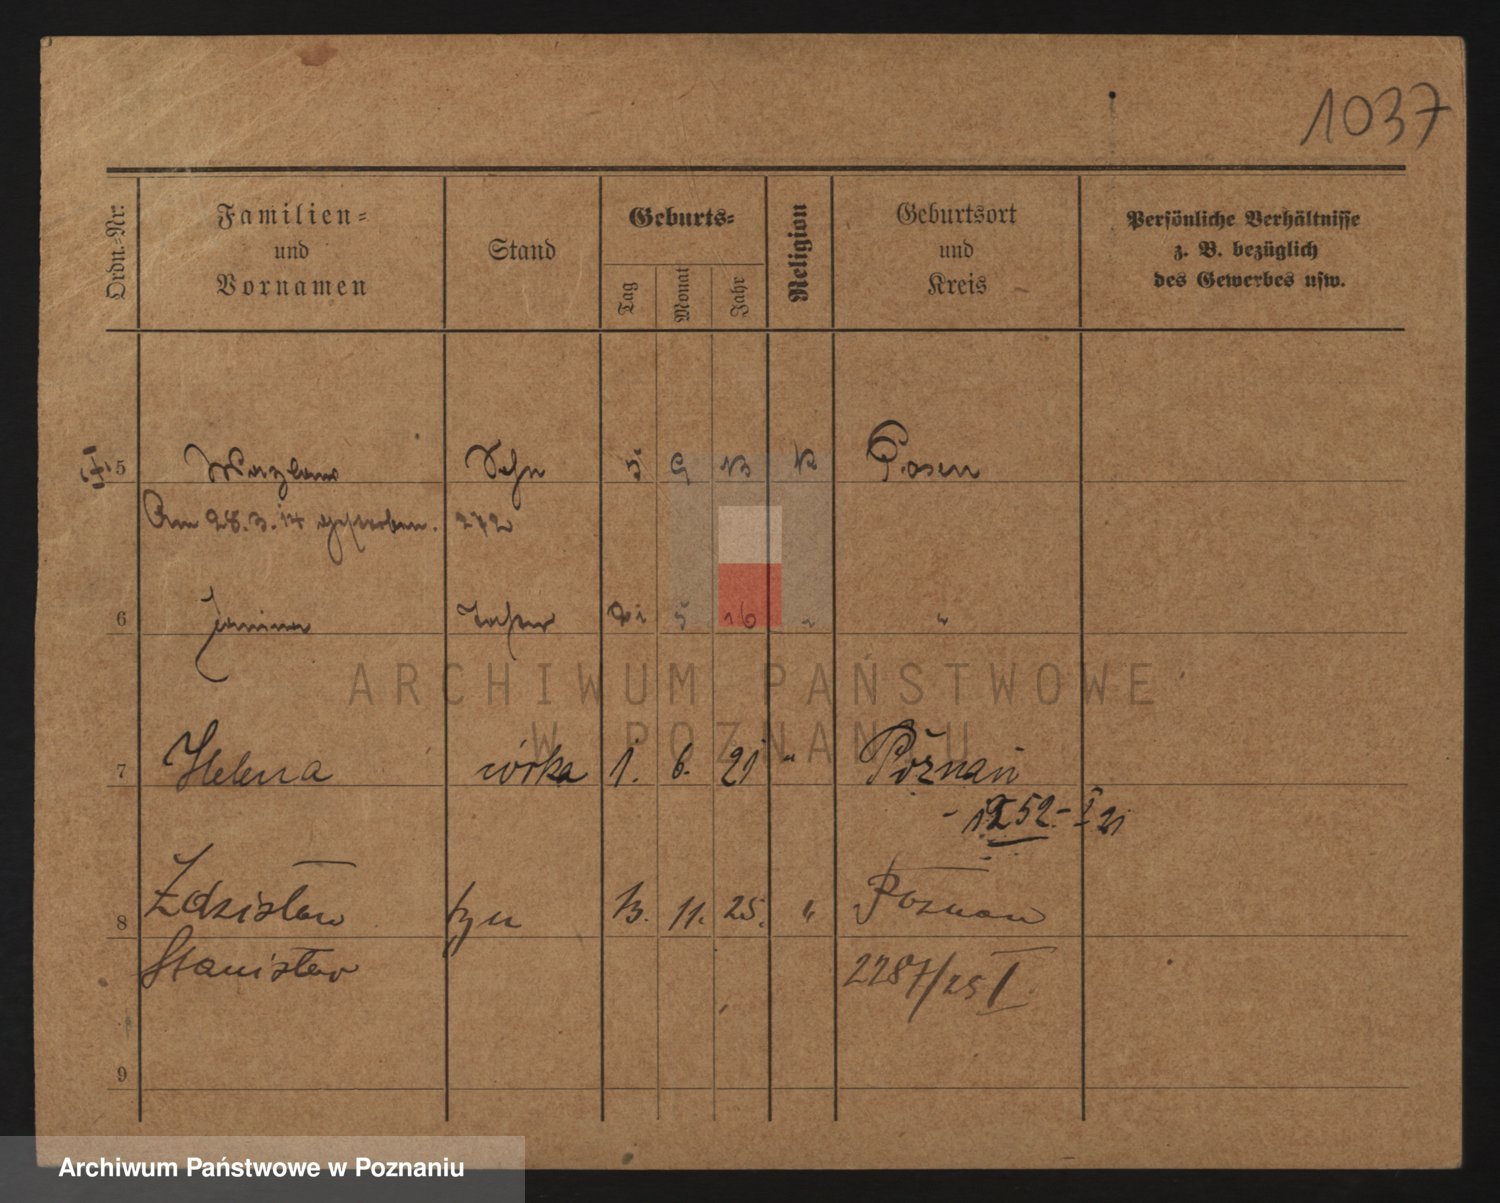 1037
Ordn.-Nr.
Familien-
und
Vornamen
Stand
Geburts-
Tag
Monat
Jahr
Religion
Geburtsort
und
Kreis
Persönliche Verhältnisse
z. B. bezüglich
des Gewerbes usw.
5 Sohn 5. 9 13 K Posen
Am 28.3.14 gestorben. 272
6 Janina Tochter 5 16 "  "
ARCHIWUM PAŃSTWOWE
W POZNANIU
7 Helena córka 1. 6. 21 " Poznań
8 Zdzisław syn 13. 11. 25. " Poznań
Stanisław 2287/25 I
9
Archiwum Państwowe w Poznaniu